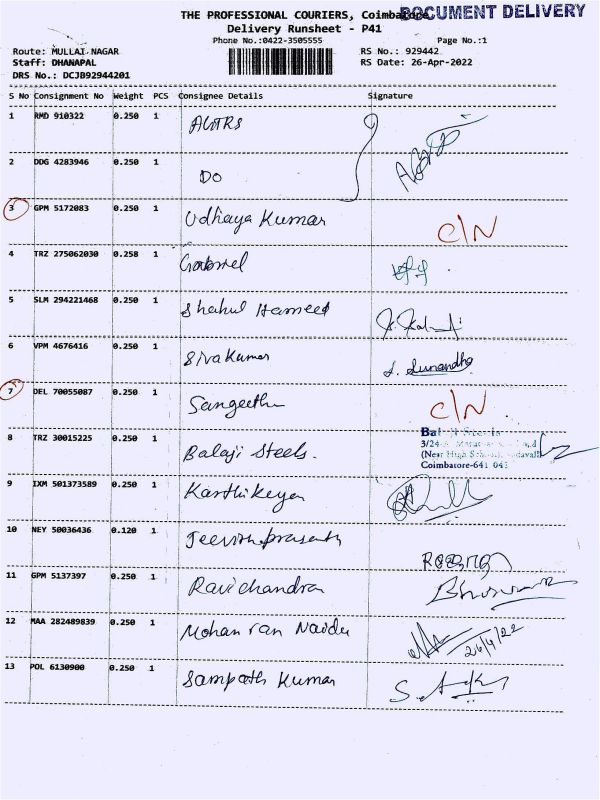 THE PROFESSIONAL COURIERS, Coimbatore
DOCUMENT DELIVERY
Delivery Runsheet - P41
Phone No.:0422-3505555 Page No.:1
Route: MULLAI NAGAR RS No.: 929442
Staff: DHANAPAL RS Date: 26-Apr-2022
DRS No.: DCJB92944201
S No Consignment No Weight PCS Consignee Details Signature
1 RMD 910322 0.250 1
2 DDG 4283946 0.250 1 DO
3 GPM 5172083 0.250 1 Udhaya Kumar C/N
4 TRZ 275062030 0.258 1
5 SLM 294221468 0.250 1 Shahul Hameed
6 VPM 4676416 0.250 1 Siva Kumar S. Sunandha
7 DEL 70055087 0.250 1 Sangeetha C/N
8 TRZ 30015225 0.250 1 Balaji Steels.
3/24-
(Near High School),
Coimbatore-641 041
9 IXM 501373589 0.250 1 Karthikeyan
10 NEY 50036436 0.120 1
11 GPM 5137397 0.250 1 Ravichandran
12 MAA 282489839 0.250 1 Mohan ran Naidu 26/4/22
13 POL 6130900 0.250 1 Sampath Kumar